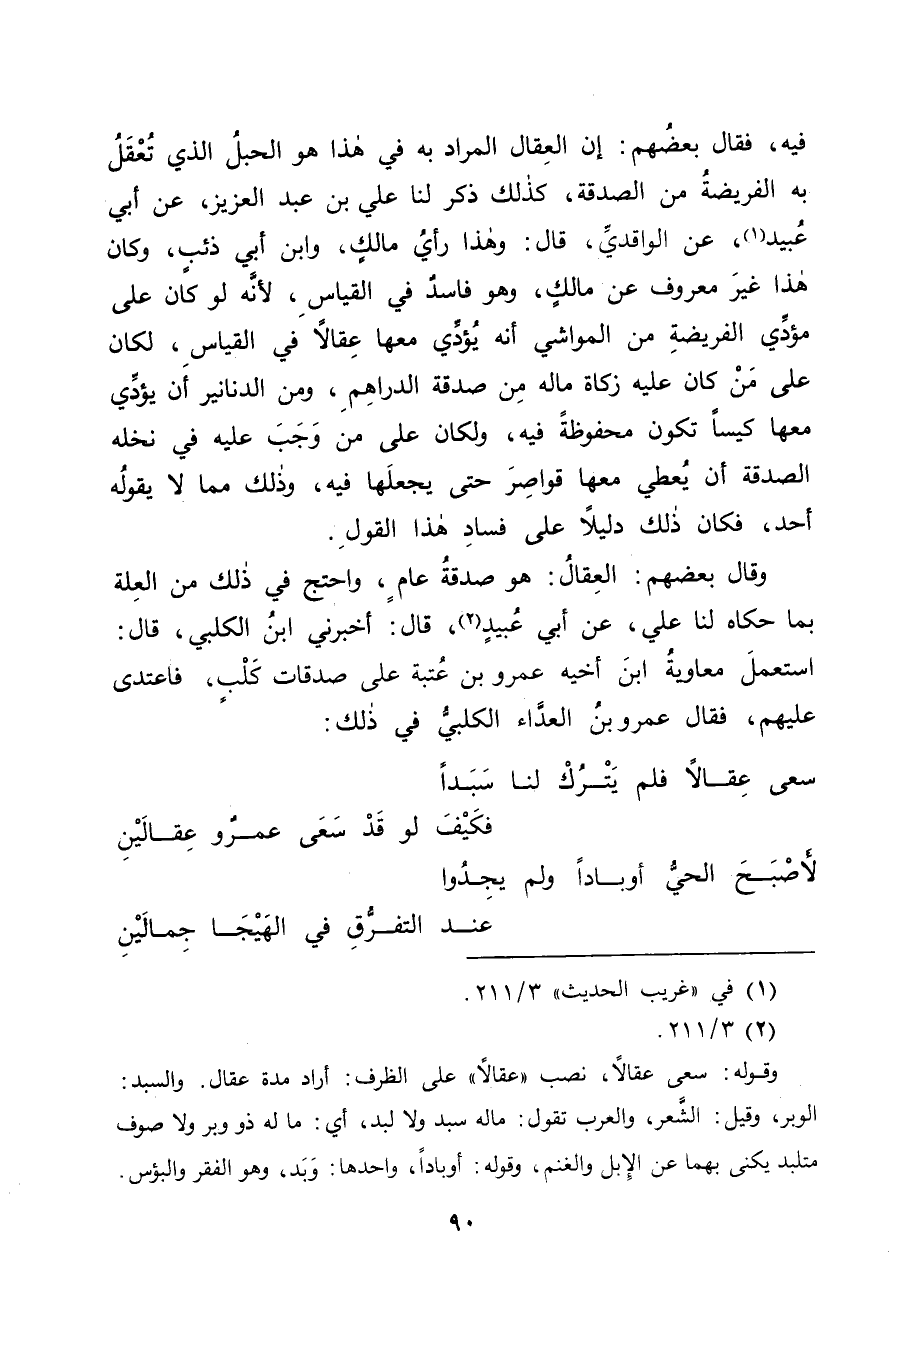 فيه، فقال بعضُهم: إن العِقال المراد به في هٰذا هو الحبلُ الذي تُعْقَلُ
به الفريضةُ من الصدقة، كذٰلك ذكر لنا علي بن عبد العزيز، عن أبي
عُبيد(١)، عن الواقديِّ، قال: وهٰذا رأيُ مالكٍ، وابن أبي ذئبٍ، وكان
هٰذا غيرَ معروف عن مالكٍ، وهو فاسدٌ في القياسِ، لأنَّه لو كان على
مؤدِّي الفريضةِ من المواشي أنه يُؤدِّي معها عِقالاً في القياسِ، لكان
على مَنْ كان عليه زكاة ماله مِن صدقة الدراهِمِ، ومن الدنانير أن يؤدِّي
معها كيساً تكون محفوظةً فيه، ولكان على من وَجَبَ عليه في نخله
الصدقة أن يُعطي معها قواصِرَ حتى يجعلَها فيه، وذٰلك مما لا يقولُه
أحد، فكان ذٰلك دليلاً على فسادِ هٰذا القولِ.
وقال بعضهم: العِقالُ: هو صدقةُ عامٍ، واحتج في ذٰلك من العِلة
بما حكاه لنا علي، عن أبي عُبيدٍ(٢)، قال: أخبرني ابنُ الكلبي، قال:
استعملَ معاويةُ ابنَ أخيه عمرو بن عُتبة على صدقات كَلْبٍ، فاعتدى
عليهم، فقال عمرو بنُ العدَّاء الكلبيُّ في ذٰلك:
سعى عِقـالاً فلم يَتْـرُكْ لنـا سَبَـداً
فكَيْفَ لو قَدْ سَعَى عمـرٌو عِقـالَيْنِ
لأَصْبَـحَ الحيُّ أوبـاداً ولم يجِـدُوا
عنـد التفـرُّقِ في الهَيْجَـا جِمـالَيْنِ
(١) في «غريب الحديث» ٢١١/٣.
(٢) ٢١١/٣.
وقوله: سعى عقالاً، نصب «عقالاً» على الظرف: أراد مدة عقال. والسبد:
الوبر، وقيل: الشَّعر، والعرب تقول: ماله سبد ولا لبد، أي: ما له ذو وبر ولا صوف
متلبد يكنى بهما عن الإبل والغنم، وقوله: أوباداً، واحدها: وَبَد، وهو الفقر والبؤس.
٩٠